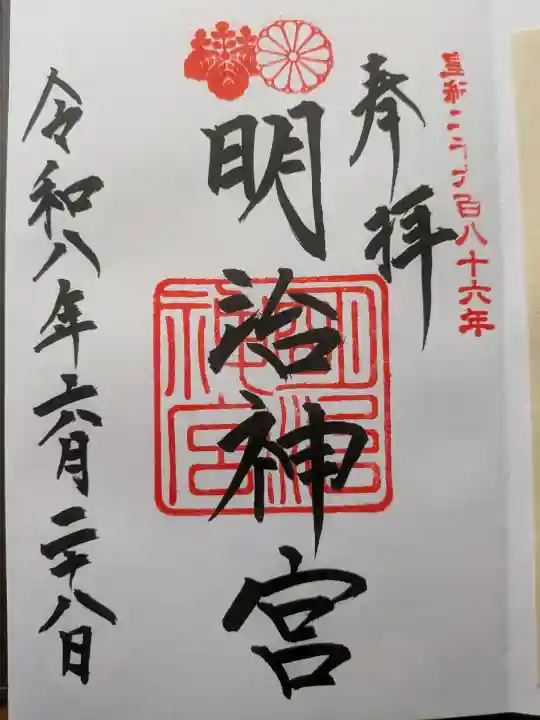 皇紀二千六百八十六年
奉拝
明治神宮
明治神宮
令和八年六月二十八日